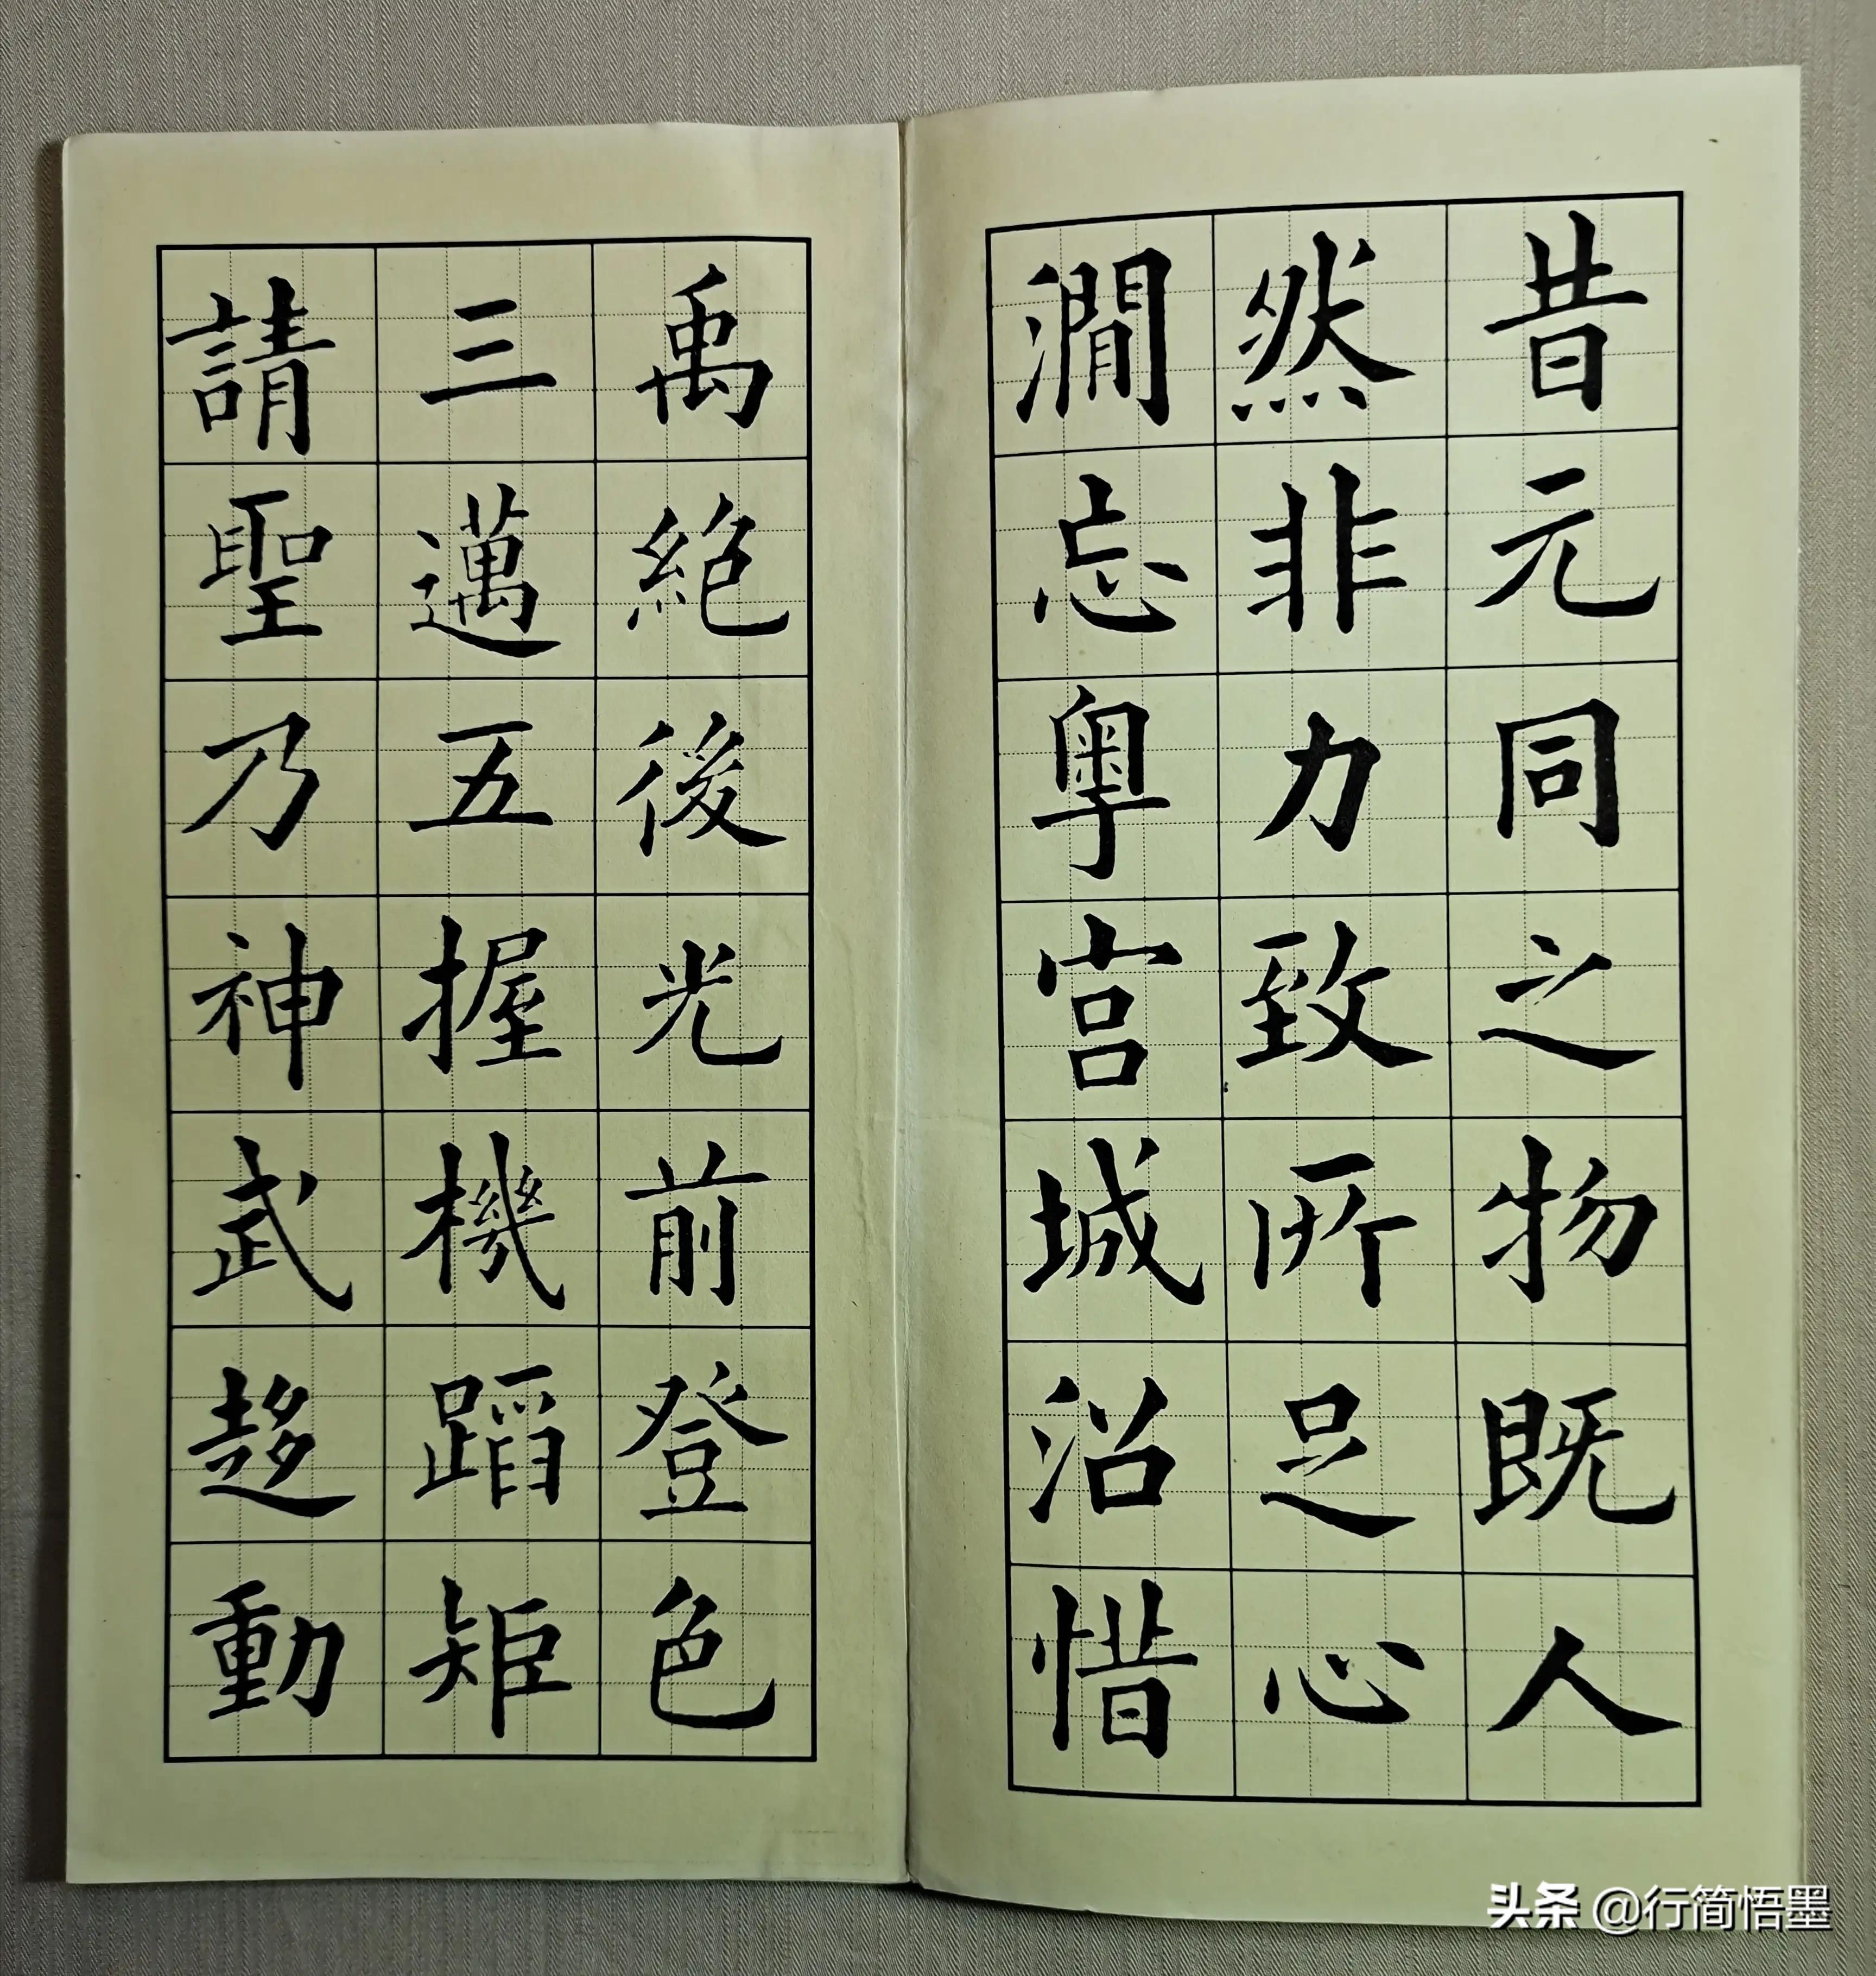 昔元同之物既人
然非力致所足心
澗忘粵宮城沿惜
禹絕後光前登色
三邁五握機蹈矩
請聖乃神武趍動
头条 @行简悟墨